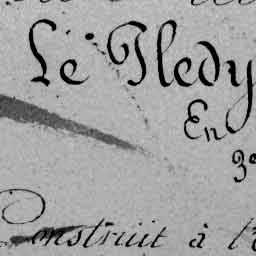 Le Pledy
En
3e
Construit à l'